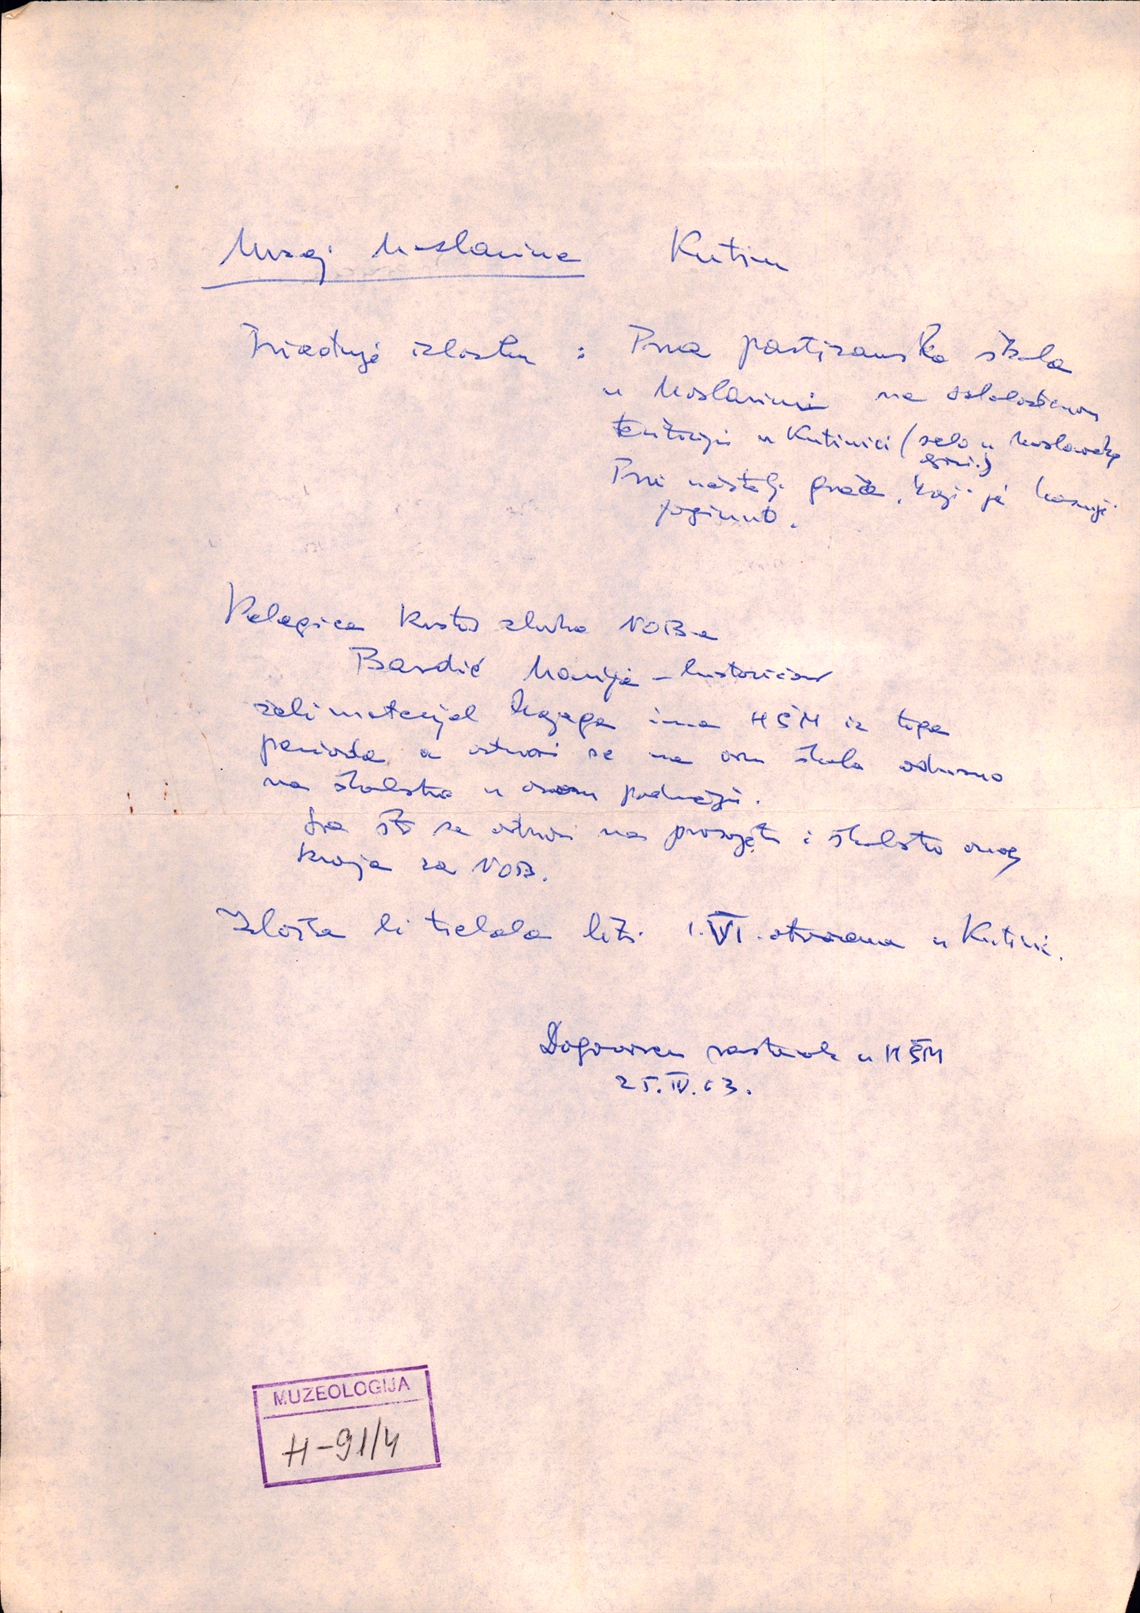 Muzej Moslavine Kutina
Priređuje izložbu : Prva partizanska škola
u Moslavini na oslobođenom
teritoriju u Kutinici (selo u Moslavačkoj
gori)
Prvi učitelj , koji je kasnije
poginuo.
Kolegica kustos NOB-a
Bardić Marija – historičar
želi materijal kojega ima HŠM iz toga
perioda, a odnosi se na ovu školu odnosno
na školstvo u ovom području.
Sve što se odnosi na prosvjetu i školstvo ovog
kraja za NOB.
Izložba bi trebala biti 1.VI. otvorena u Kutini.
Dogovoren sastanak u HŠM
25.IV.63.
MUZEOLOGIJA
H-91/4